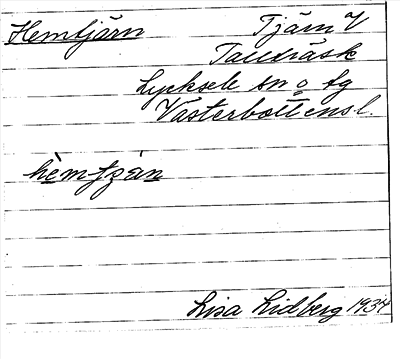 Hemtjärn Tjärn V
Tallträsk
Lycksele sn o fg
Västerbottensl.
hèmtjzän
Lisa Lidberg 1934